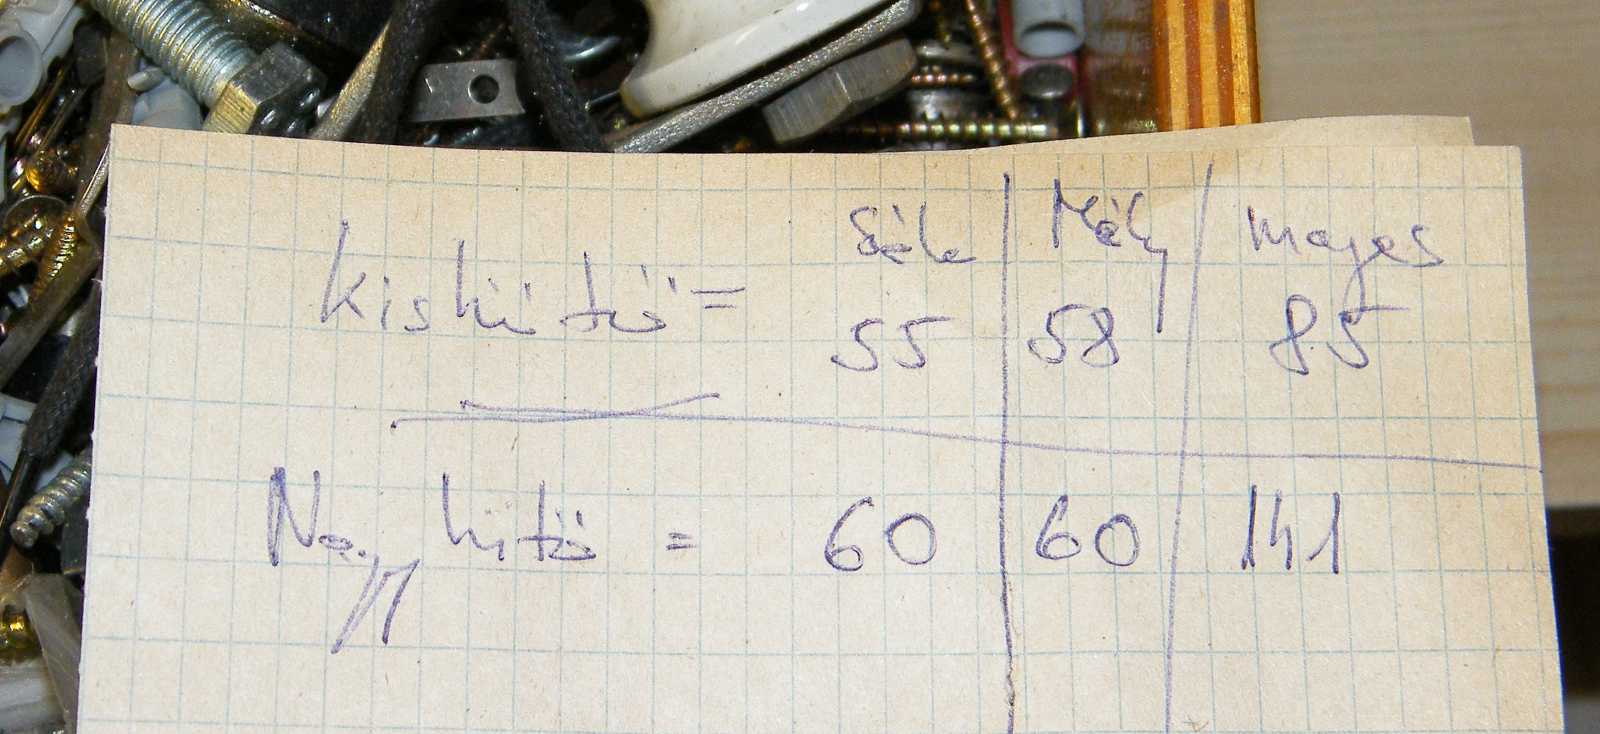 Széle Mély magas
Kishűtő = 55 58 85
Nagy hűtő = 60 60 141